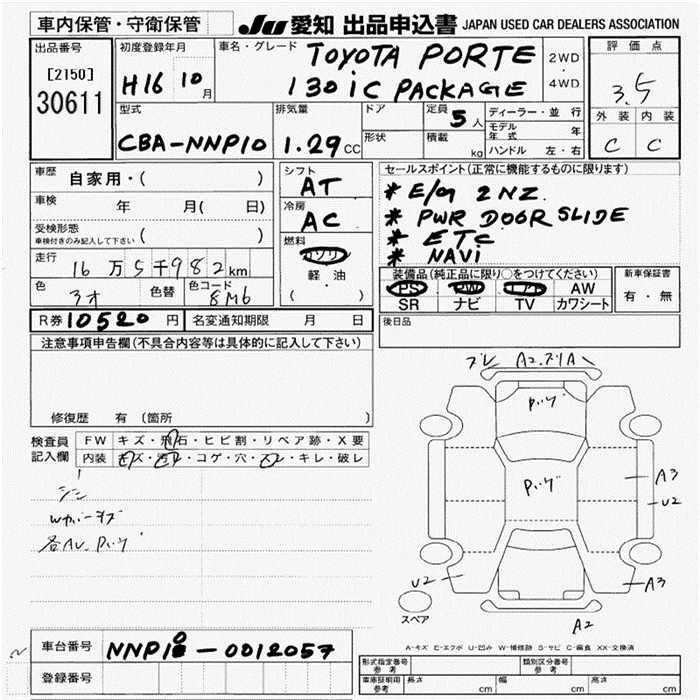 車内保管・守衛保管
JU 愛知 出品申込書 JAPAN USED CAR DEALERS ASSOCIATION
出品番号
[2150]
30611
初度登録年月
H16 10月
車名・グレード
TOYOTA PORTE
130iC PACKAGE
2WD
・
4WD
評価点
3.5
外装 内装
C C
型式
CBA-NNP10
排気量
1.29cc
ドア
形状
定員 5人
積載 kg
ディーラー・並行
モデル年式 年
ハンドル 左・右
車歴 自家用・( )
車検 年 月( 日)
受検形態
車検付きのみ記入して下さい ( )
走行 16万5千982km
色 色替 色コード 8M6
シフト
AT
冷房
AC
燃料
ガソリン
軽油
( )
セールスポイント(正常に機能するものに限ります)
* E/G 2NZ
* PWR DOOR SLIDE
* ETC
* NAVI
装備品(純正品に限り○をつけてください)
PS PW エアB AW
SR ナビ TV カワシート
新車保証書
有・無
R券 10520円 名変通知期限 月 日
後日品
注意事項申告欄(不具合内容等は具体的に記入して下さい)
修復歴 有 〔箇所
検査員記入欄
FW キズ・飛石・ヒビ割・リペア跡・X要
内装 キズ・汚レ・コゲ・穴・スレ・キレ・破レ
シミ
Wカバーキズ
各AU Pハゲ
ズレ A2.ズリA
Pハゲ
Pハゲ
A3
U2
U2
A3
スペア
A2
A-キズ E-エクボ U-凹み W-補修跡 S-サビ C-腐食 XX-交換済
車台番号 NNP10-0012057
登録番号
形式指定番号 参考
類別区分番号 参考
車庫証明用 参考 長さ cm 幅 cm 高さ cm